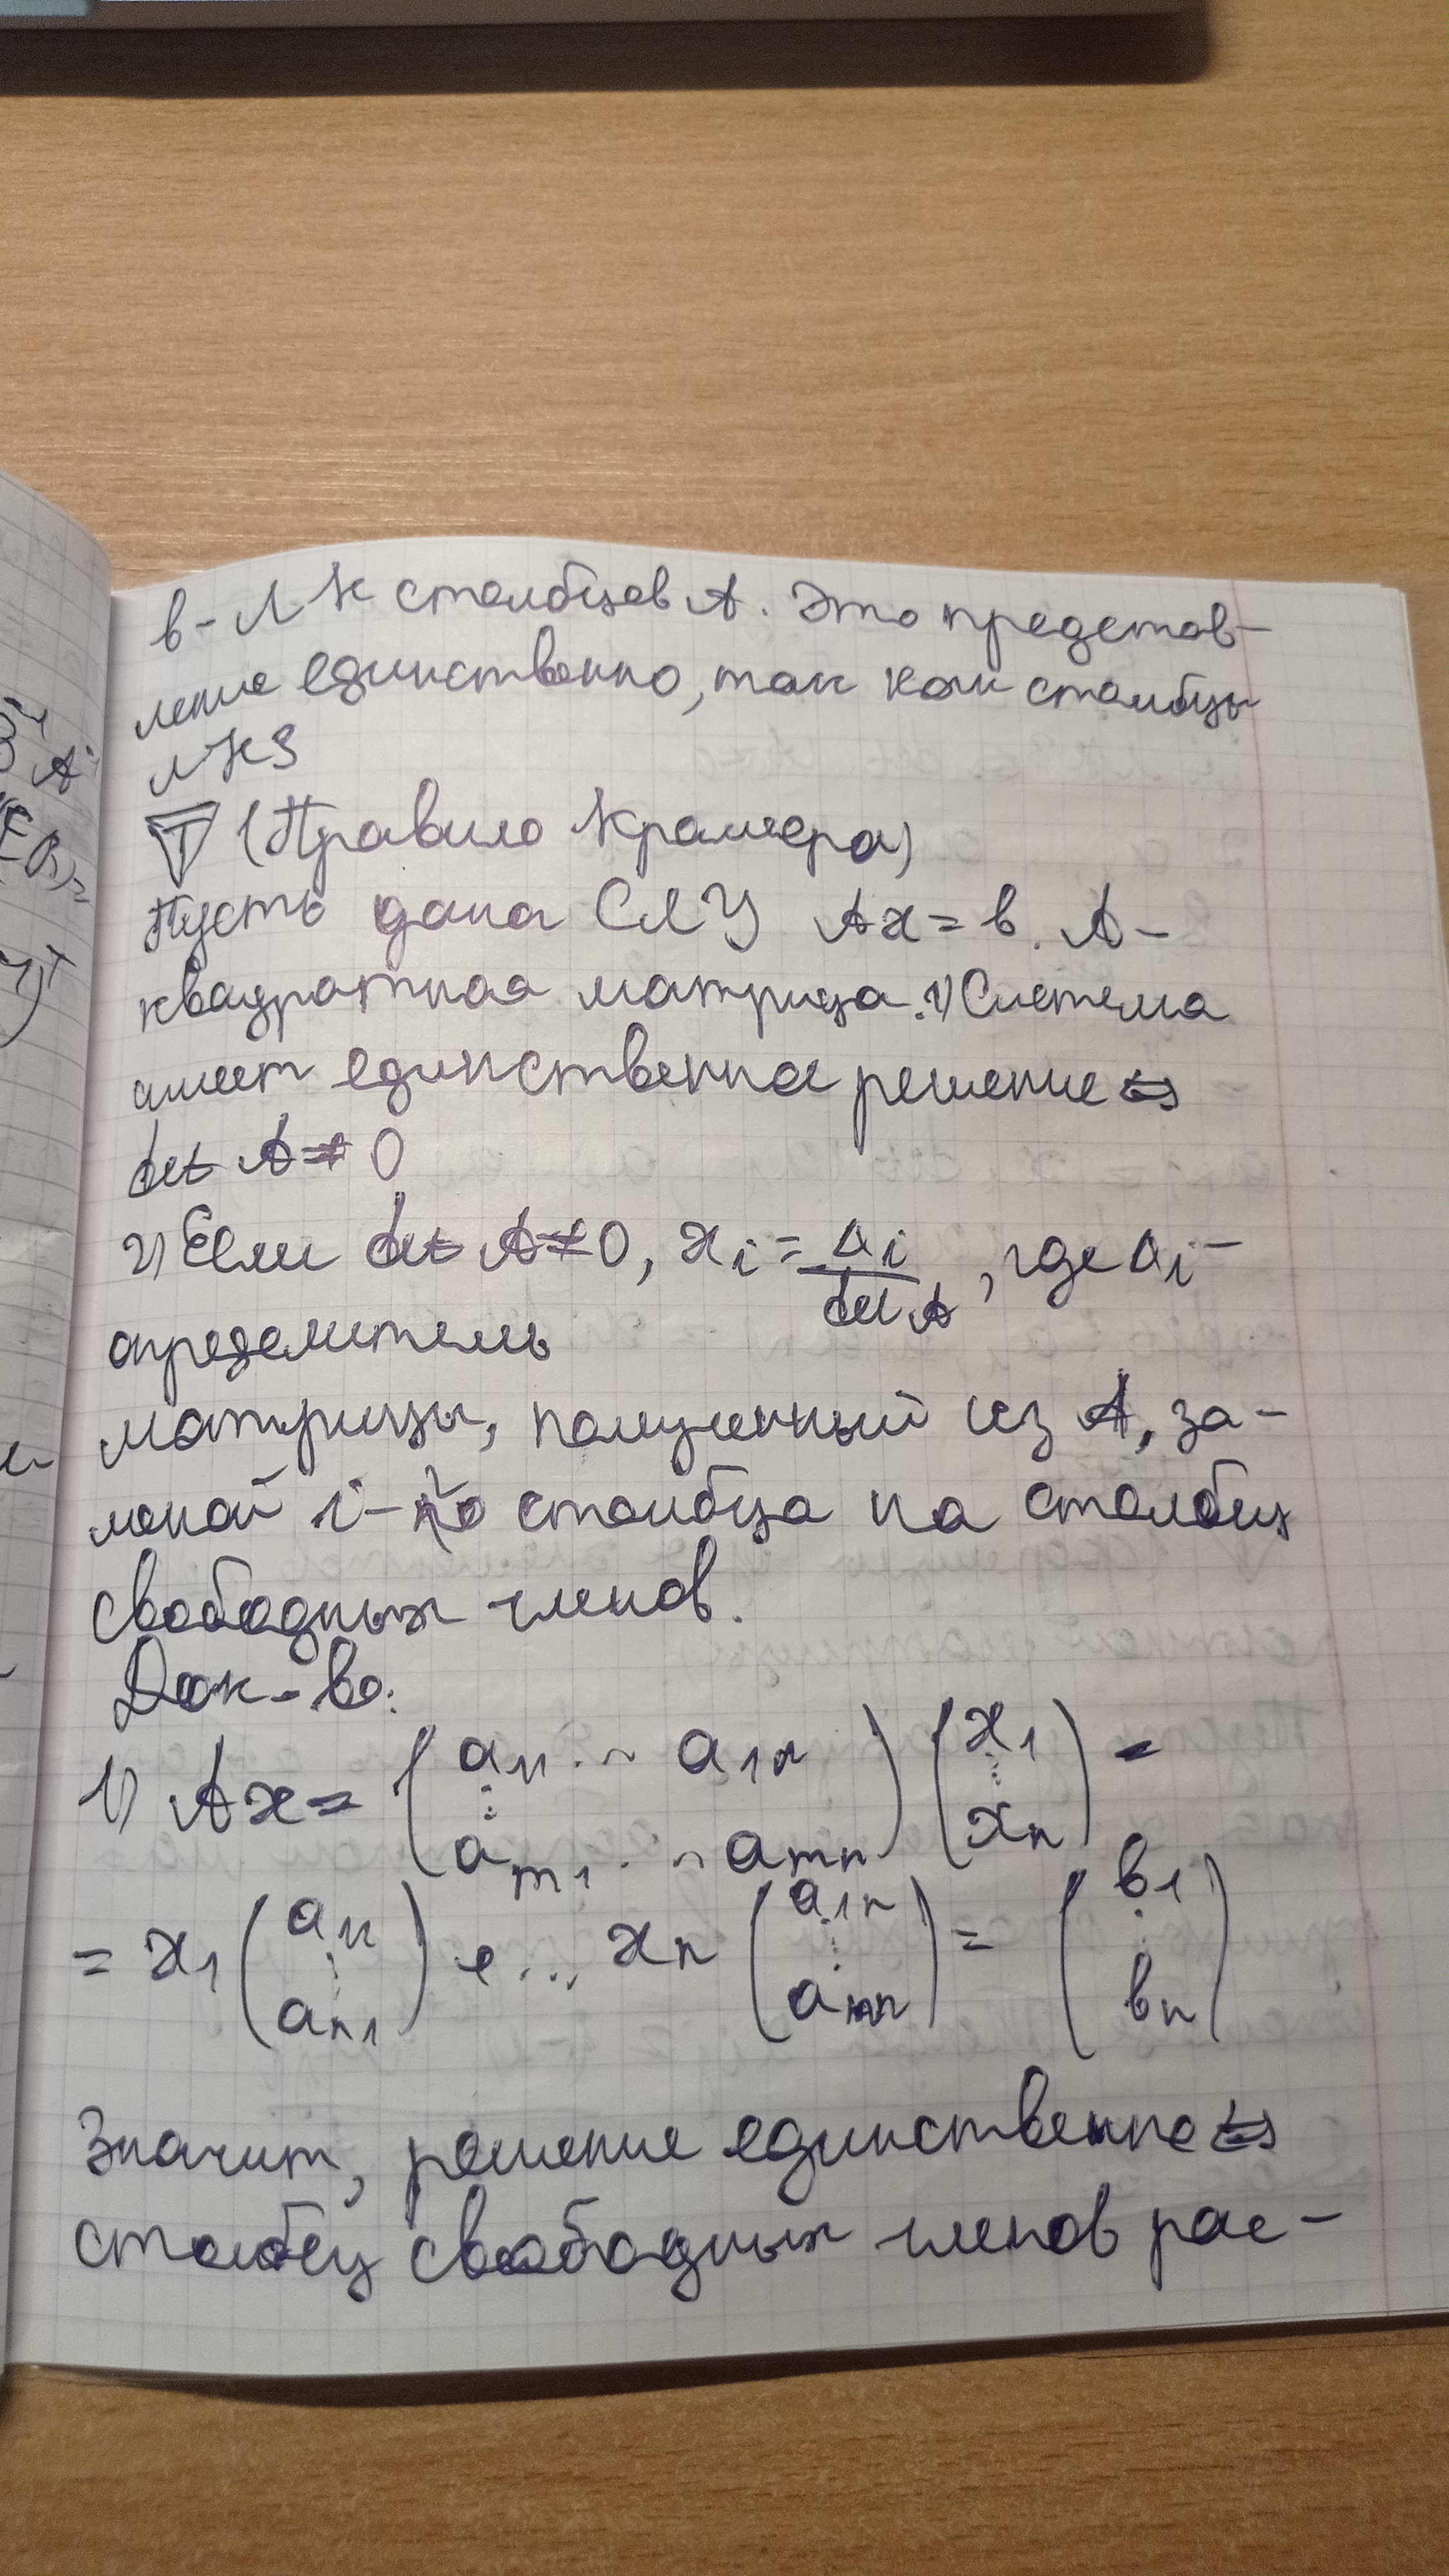 в - ЛК столбцов A. Это представ-
ление единственно, так как столбцы
ЛНЗ
T (Правило Крамера)
Пусть дана СЛУ Ax = b. A -
квадратная матрица. 1) Система
имеет единственное решение ⇔
det A ≠ 0
2) Если det A ≠ 0, xi = Δi / det A, где Δi -
определитель
матрицы, полученный из A, за-
меной i-го столбца на столбец
свободных членов.
Док-во:
1) Ax = (a11 ... a1n ⋮ am1 ... amn) (x1 ⋮ xn) =
= x1 (a11 ⋮ an1) + ... xn (a1n ⋮ ann) = (b1 ⋮ bn)
Значит, решение единственно ⇔
столбец свободных членов рас-